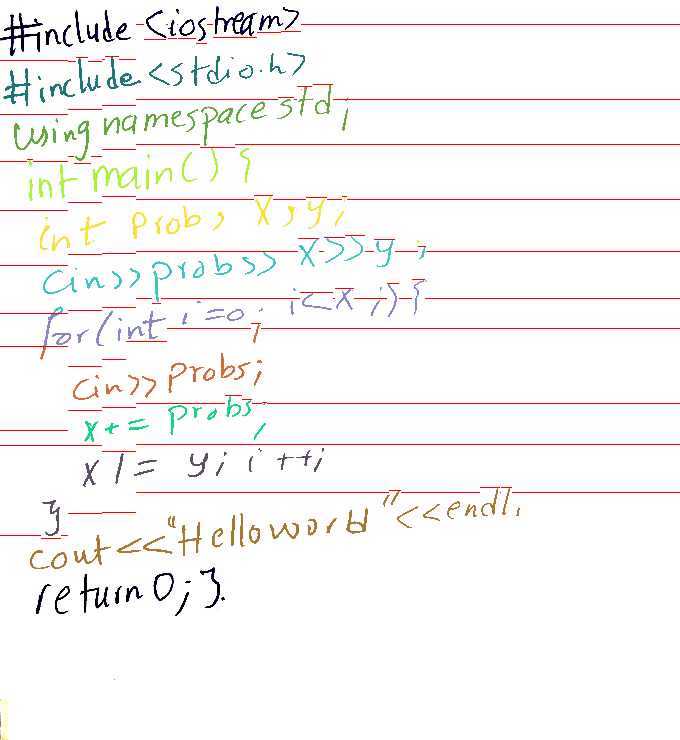 #include <iostream>
#include <stdio.h>
using namespace std;
int main() {
int prob, x, y;
cin>>probs>> x>>y;
for(int i=0; i<x;) {
cin>>probs;
x+= probs;
x/= y; i++;
}
cout<<"Hello world"<<endl.
return 0; }.